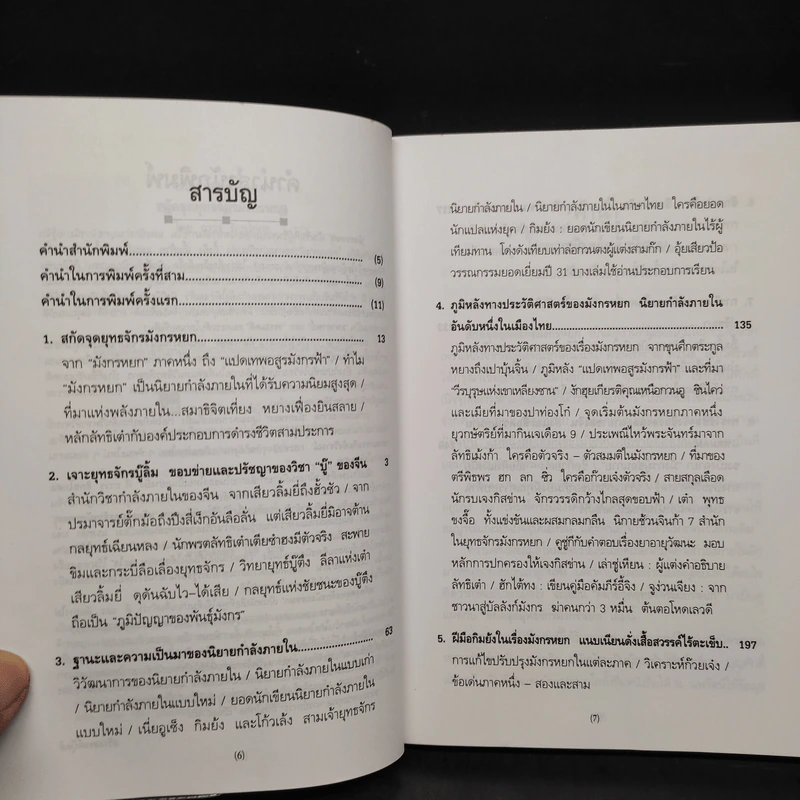 สารบัญ
คำนำสำนักพิมพ์ (5)
คำนำในการพิมพ์ครั้งที่สาม (9)
คำนำในการพิมพ์ครั้งแรก (11)
1. สกัดจุดยุทธจักรมังกรหยก 13
จาก “มังกรหยก” ภาคหนึ่ง ถึง “แปดเทพอสูรมังกรฟ้า” / ทำไม
“มังกรหยก” เป็นนิยายกำลังภายในที่ได้รับความนิยมสูงสุด /
ที่มาแห่งพลังภายใน...สมาธิจิตเที่ยง หยางเฟื่องยินสลาย /
หลักลัทธิเต๋ากับองค์ประกอบการดำรงชีวิตสามประการ
2. เจาะยุทธจักรบู๊ลิ้ม ขอบข่ายและปรัชญาของวิชา “บู๊” ของจีน 3
สำนักวิชากำลังภายในของจีน จากเสียวลิ้มยี่ถึงฮั้วซัว / จาก
ปรมาจารย์ตั๊กม้อถึงปึงสี่เง็กอันลือลั่น แต่เสียวลิ้มยี่มีอาจต้าน
กลยุทธ์เฉียนหลง / นักพรตลัทธิเต๋าเตียซำฮงมีตัวจริง สะพาย
ขิมและกระบี่ลือเลื่องยุทธจักร / วิทยายุทธ์บู๊ตึ๊ง ลีลาแห่งเต๋า
เสียวลิ้มยี่ ดุดันฉับไว-ได้เสีย / กลยุทธ์แห่งชัยชนะของบู๊ตึ๊ง
ถือเป็น “ภูมิปัญญาของพันธุ์มังกร”
3. ฐานะและความเป็นมาของนิยายกำลังภายใน 63
วิวัฒนาการของนิยายกำลังภายใน / นิยายกำลังภายในแบบเก่า
/ นิยายกำลังภายในแบบใหม่ / ยอดนักเขียนนิยายกำลังภายใน
แบบใหม่ / เนี่ยอูเซ็ง กิมย้ง และโก้วเล้ง สามเจ้ายุทธจักร
(6)
นิยายกำลังภายใน / นิยายกำลังภายในในภาษาไทย ใครคือยอด
นักแปลแห่งยุค / กิมย้ง : ยอดนักเขียนนิยายกำลังภายในไร้ผู้
เทียมทาน โด่งดังเทียบเท่าล่อกวนตงผู้แต่งสามก๊ก / อุ้ยเสี่ยวป้อ
วรรณกรรมยอดเยี่ยมปี 31 บางเล่มใช้อ่านประกอบการเรียน
4. ภูมิหลังทางประวัติศาสตร์ของมังกรหยก นิยายกำลังภายใน
อันดับหนึ่งในเมืองไทย 135
ภูมิหลังทางประวัติศาสตร์ของเรื่องมังกรหยก จากขุนศึกตระกูล
หยางถึงเปาบุ้นจิ้น / ภูมิหลัง “แปดเทพอสูรมังกรฟ้า” และที่มา
“วีรบุรุษแห่งเขาเหลียงซาน” / งักฮุยเกียรติคุณเหนือกวนอู ชินไคว่
และเมียที่มาของปาท่องโก๋ / จุดเริ่มต้นมังกรหยกภาคหนึ่ง
ยุวกษัตริย์ที่มากินเจเดือน 9 / ประเพณีไหว้พระจันทร์มาจาก
ลัทธิเม้งก้า ใครคือตัวจริง – ตัวสมมติในมังกรหยก / ที่มาของ
ตรีพิธพร ฮก ลก ซิ่ว ใครคือก๊วยเจ๋งตัวจริง / สายสกุลเลือด
นักรบเจงกิสข่าน จักรวรรดิกว้างไกลสุดขอบฟ้า / เต๋า พุทธ
ขงจื๊อ ทั้งแข่งขันและผสมกลมกลืน นิกายช้วนจินก้า 7 สำนัก
ในยุทธจักรมังกรหยก / คูชู่กีกับคำตอบเรื่องยาอายุวัฒนะ มอบ
หลักการปกครองให้เจงกิสข่าน / เล่าชู่เหียน : ผู้แต่งคำอธิบาย
ลัทธิเต๋า / ฮักไต้ทง : เขียนคู่มือคัมภีร์อี้จิง / จูง่วนเจียง : จาก
ชาวนาสู่บัลลังก์มังกร ฆ่าคนกว่า 3 หมื่น ต้นตอโหดเลวดี
5. ฝีมือกิมย้งในเรื่องมังกรหยก แนบเนียนดั่งเสื้อสวรรค์ไร้ตะเข็บ 197
การแก้ไขปรับปรุงมังกรหยกในแต่ละภาค / วิเคราะห์ก๊วยเจ๋ง /
ข้อเด่นภาคหนึ่ง – สองและสาม
(7)